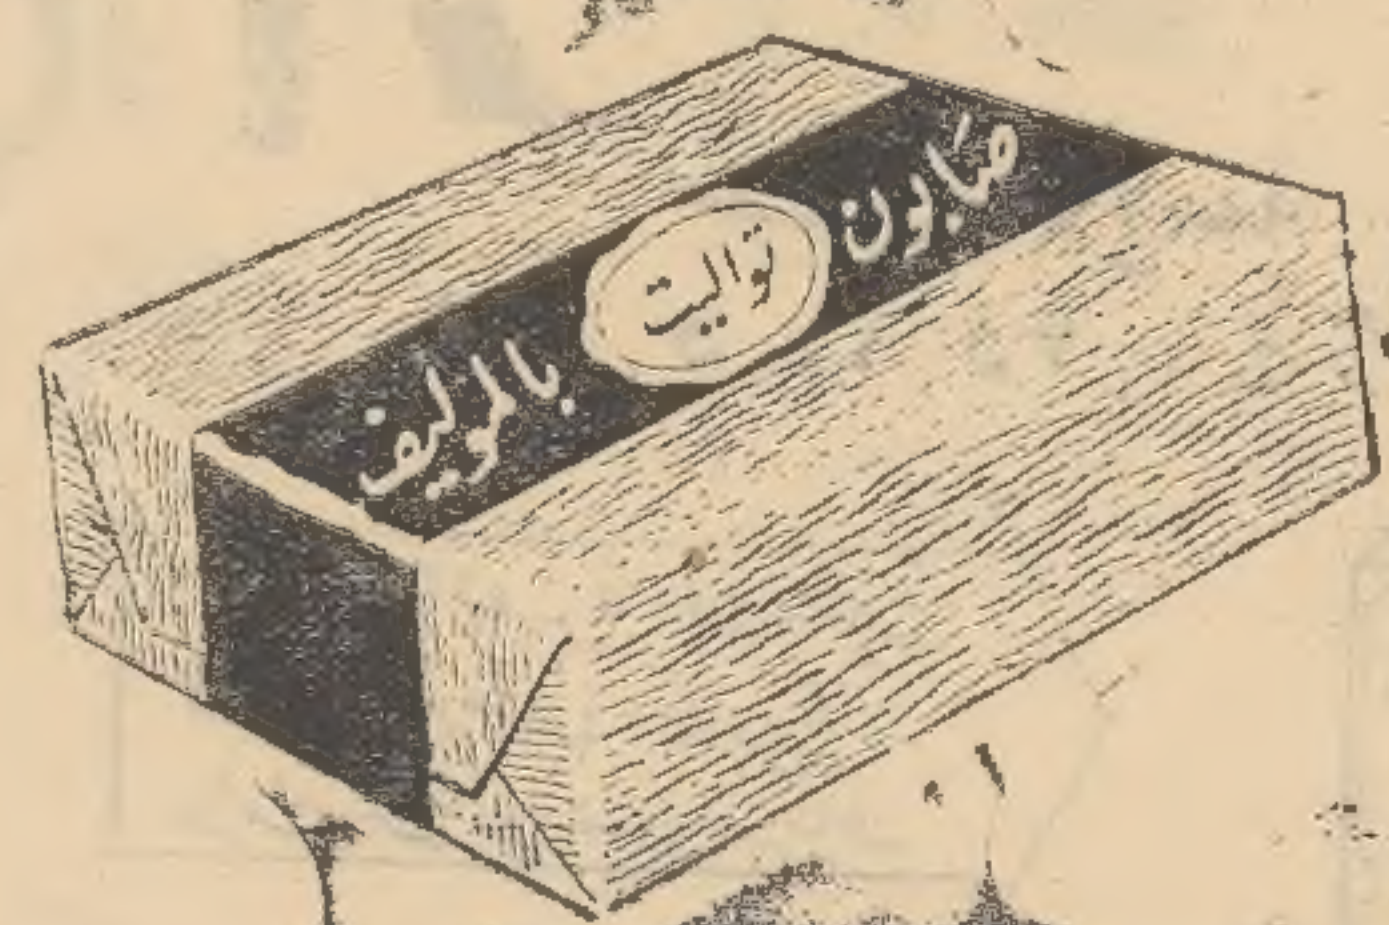 صَابون
تواليت
بالموليف